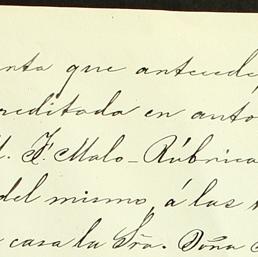 enta que antecede
reditada en auto
M. F. Malo - Rúbrica
del mismo, á las
casa la Sra. Doña